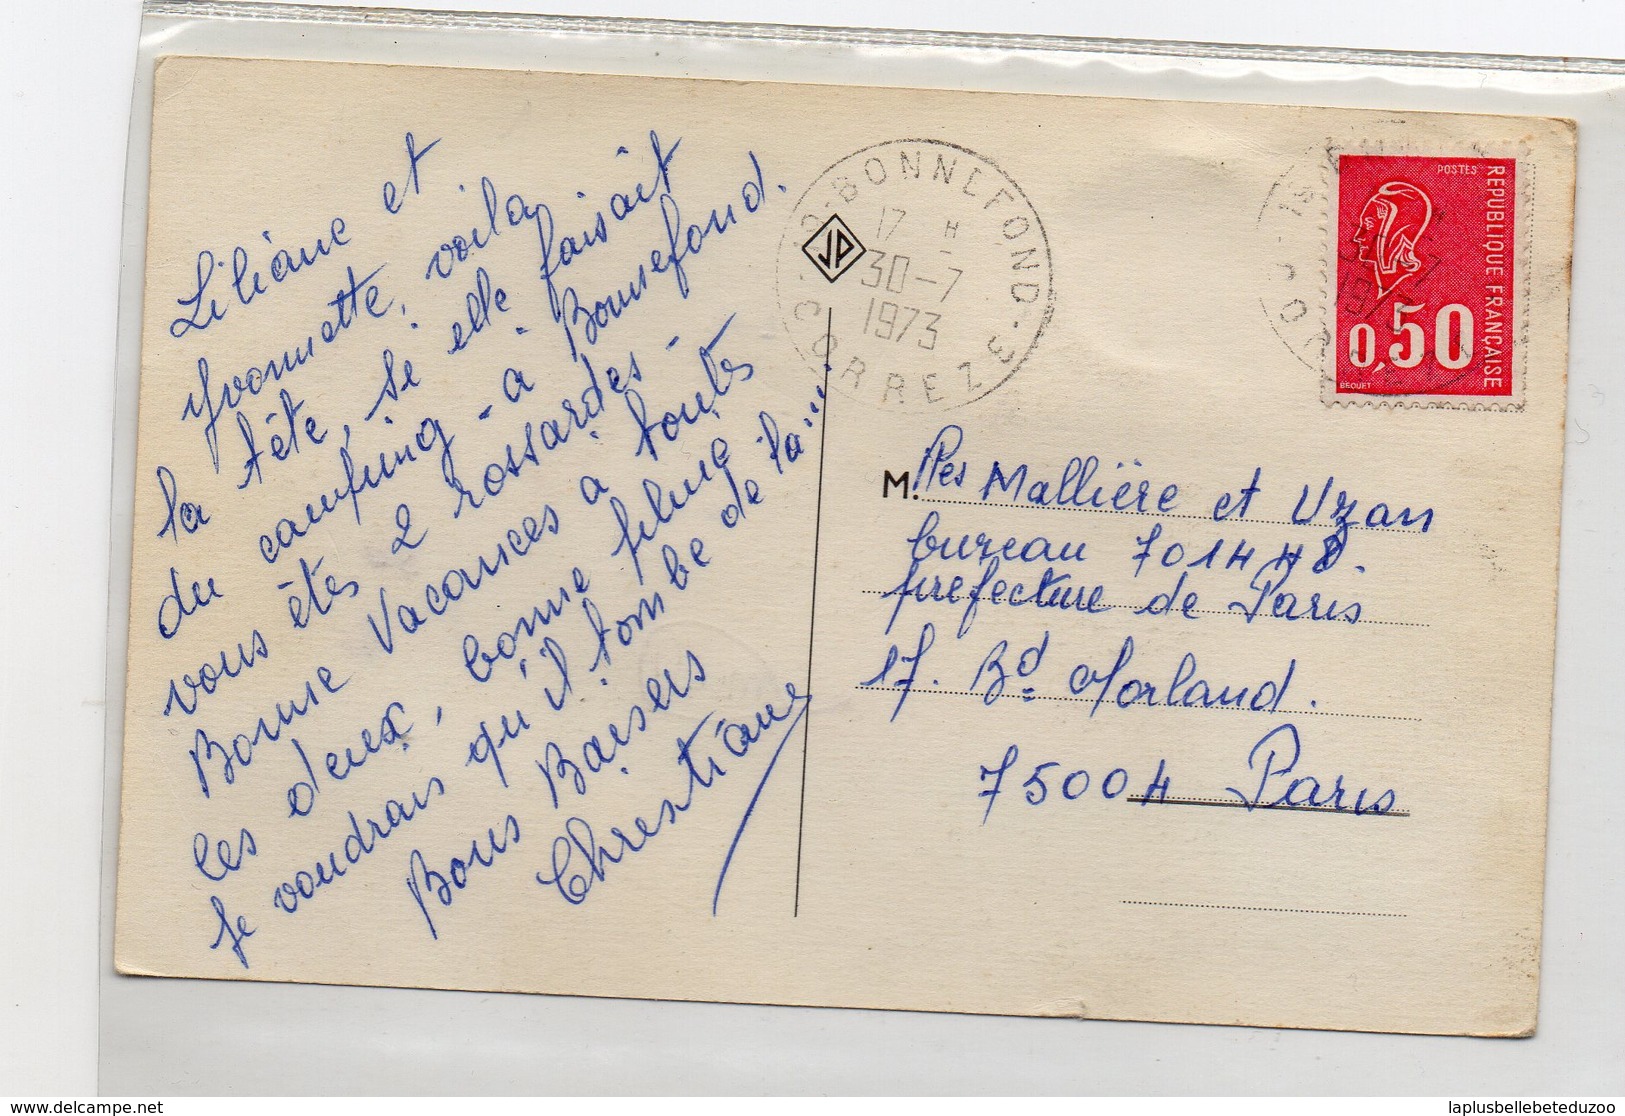 Liliane et
Yvonnette, voila
la tête, si elle faisait
du camping - a Bonnefond.
vous êtes 2 rossardes -
Bonne Vacances a toutes
les deux, bonne
je voudrais qu'il tombe de la ....
Bons Baisers
Christiane
19-BONNEFOND
17 H
30-7
1973
CORREZE
JD
POSTES
REPUBLIQUE FRANÇAISE
0,50
BEQUET
30-7
1973
M.lles Mallière et Uzan
bureau
prefecture de Paris
17. Bd Morland.
75004 Paris
laplusbellebeteduzoo